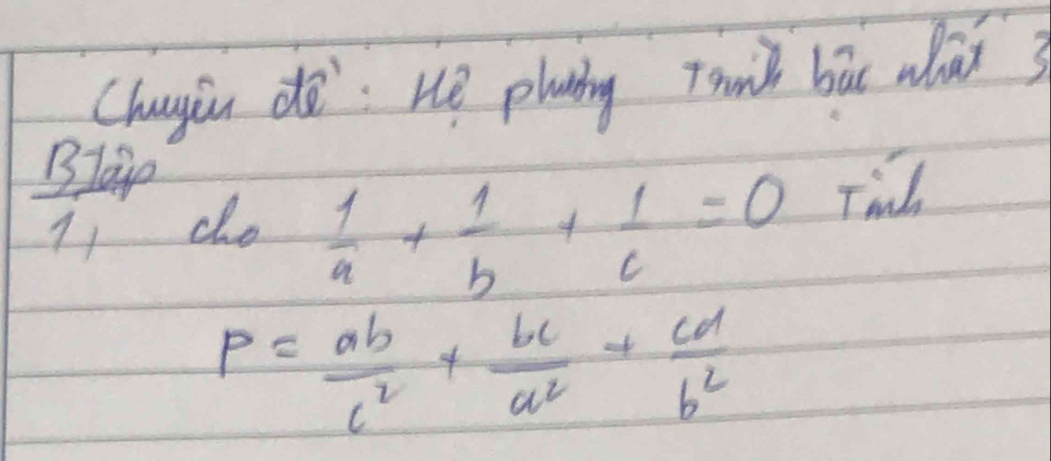 Chuyên đề : Hệ phương Trình bậc nhất 3
BTập
1, cho 1/a + 1/b + 1/c = 0 Tính
P = ab/c² + bc/a² + ca/b²